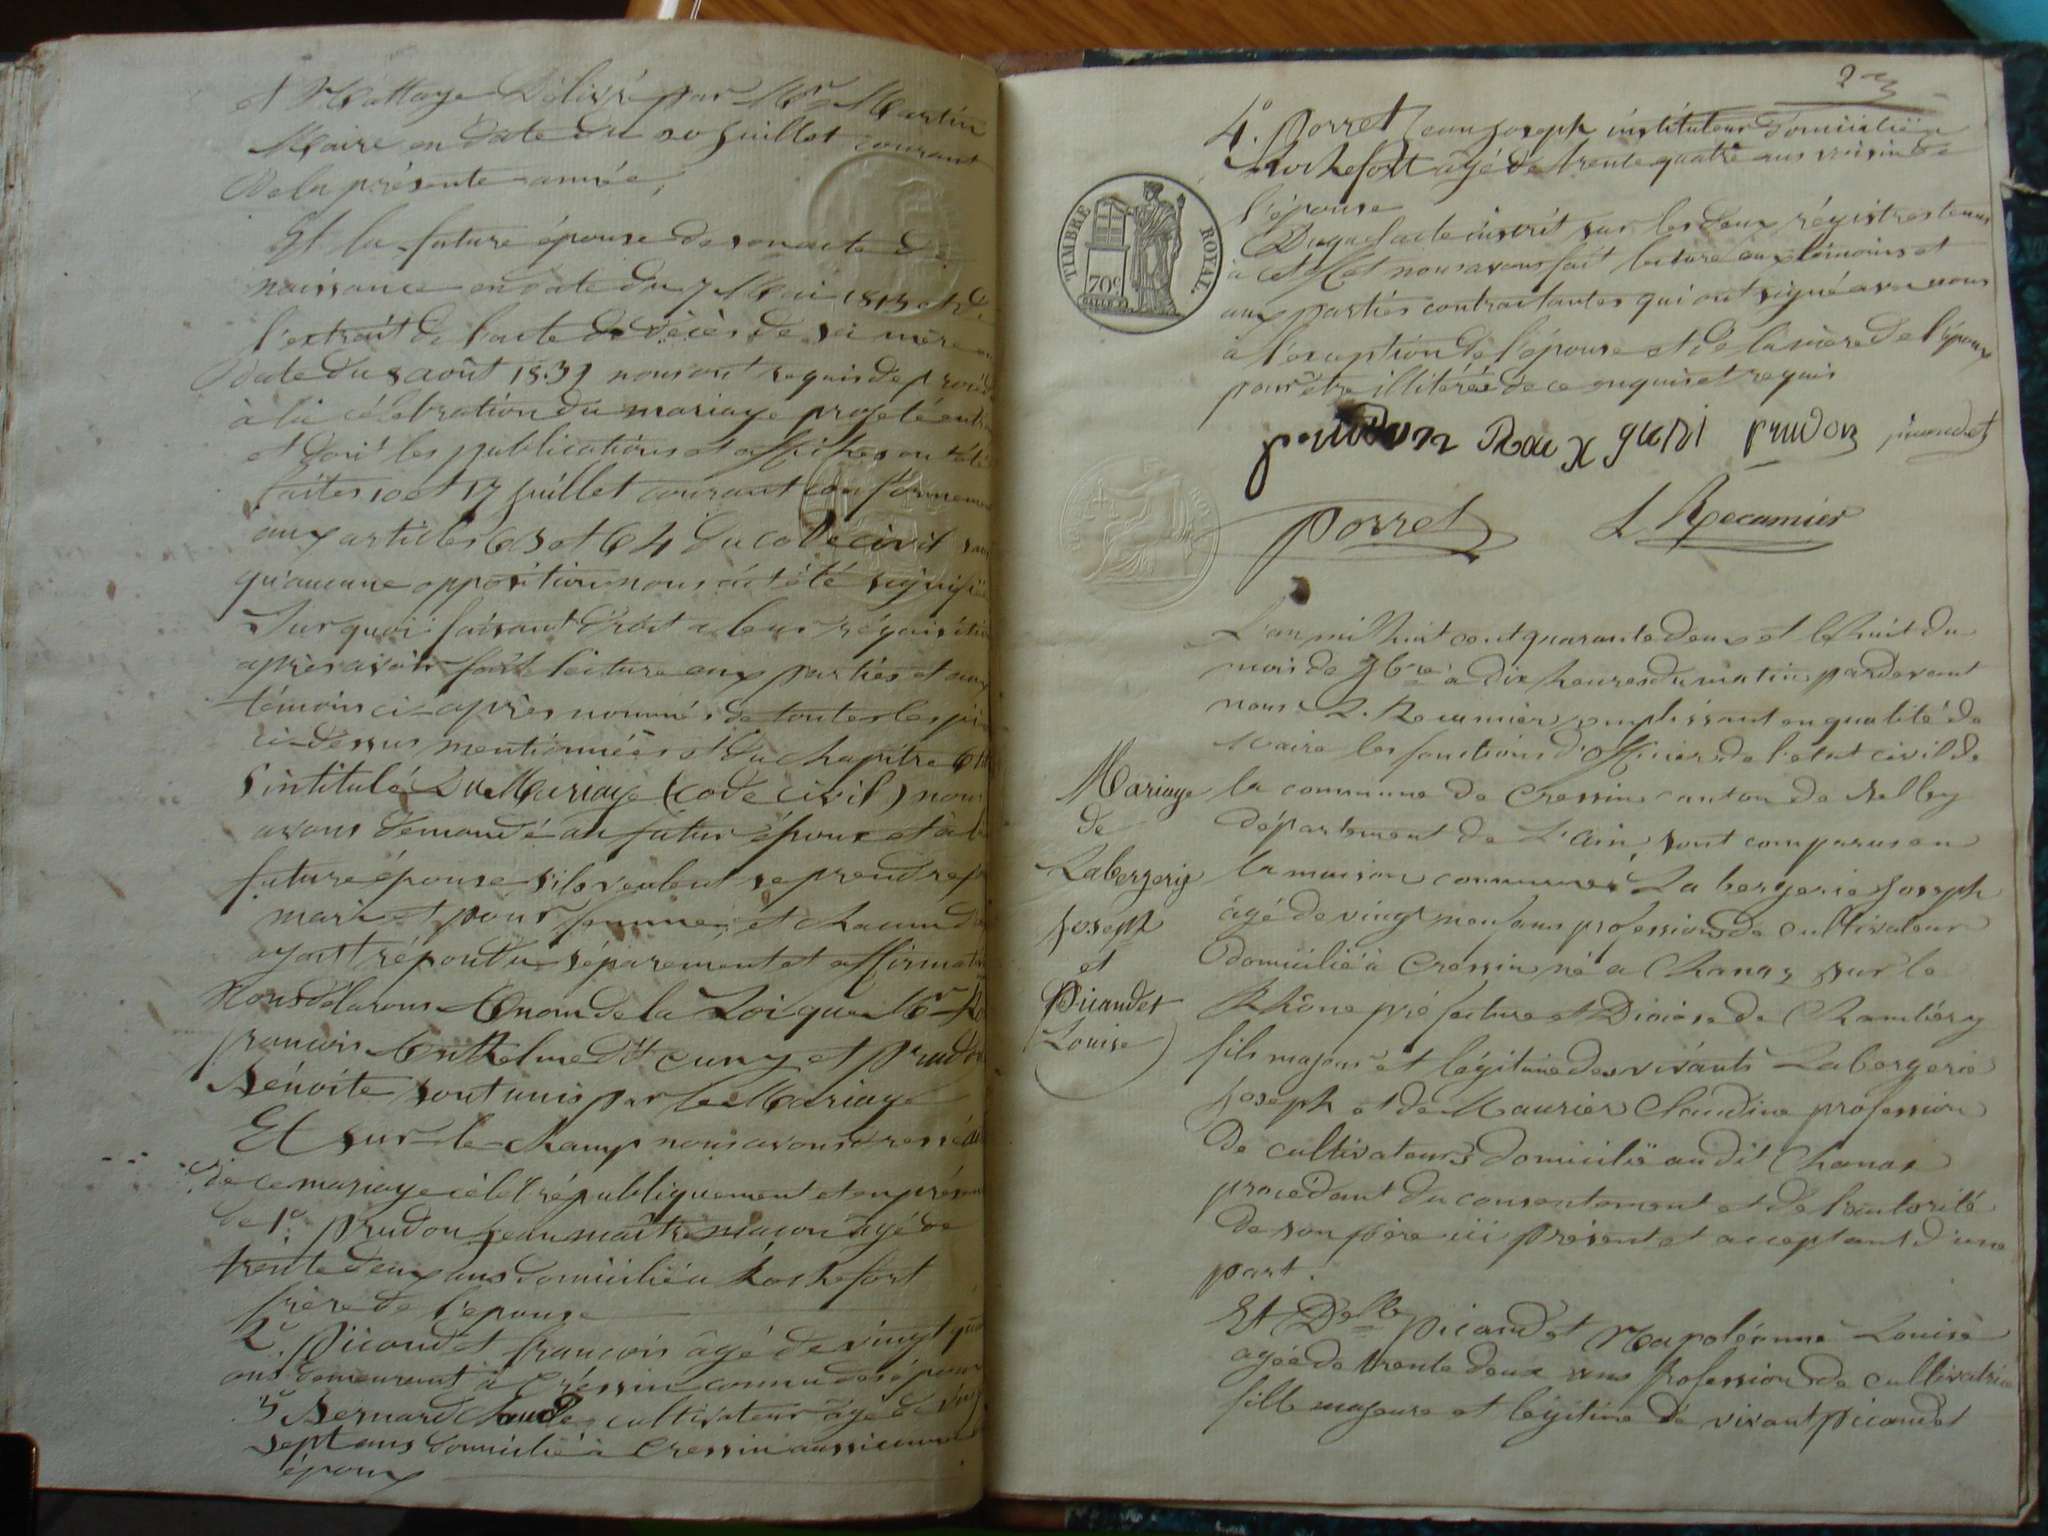 et Mattaye délivré par Mr Martin
Maire en date du 20 juillet courant
de la présente année,
Et la future épouse de son acte de
naissance en date du 7 Mai 1813 et de
l'extrait de l'acte de décès de sa mère en
date du 8 août 1839 nous ont requis de procéd
à la célébration du mariage projeté entr
et dont les publications et affiches ont été
faites 10 et 17 juillet courant conformémen
aux articles 63 et 64 du code civil sans
qu'aucune opposition nous ait été signifiée
Sur quoi faisant droit à leur réquisition
après avoir fait lecture aux parties et aux
témoins ci-après nommés de toutes les piè
ci-dessus mentionnées et du chapitre 6
s'intitulé Du Mariage (code civil) nous
avons demandé au futur époux et à la
future épouse s'ils veulent se prendre p
mari et pour femme, et chacun d
ayant répondu séparement et affirmativ
Nous déclarons au nom de la Loi que Mr
françois Anthelme dt cuny et prudon
Bénoite sont unis par le Mariage
Et sur le champ nous avons dressé
de ce mariage célébré publiquement et en présen
de 1° prudon jean maître maçon âgé de
trente deux ans domicilié à Rochefort
frère de l'epouse
2° Picaudet françois âgé de vingt
ans demeurant à Cressin connu des époux
3° Bernard Claude cultivateur âgé de vingt
sept ans domicilié à Cressin aussi connu
époux
4° Porret jean joseph instituteur domicilié à
Rochefort agé de trente quatre ans voisin de
l'épouse
TIMBRE ROYAL.
70c
Duquel acte inscrit sur les deux régistres tenus
à cet effet nous avons fait lecture aux témoins et
aux parties contractantes qui ont signé avec nous
à l'exception de l'épouse et de la mère de l'époux
pour être illitérées de ce enquis et requis
prudon Roux guni prudon picaudet
porret L Recamier
L'an mil huit cent quarante deux et le huit du
mois de 9bre à dix heures du matin pardevant
nous L. Recamier remplissant en qualité de
Maire les fonctions d'officier de l'état civil de
Mariage
de
Labergerie
joseph
et
Picaudet
Louise
la commune de Cressin canton de Belley
département de L'ain, sont comparus en
la maison commune Labergerie Joseph
âgé de vingt neuf ans profession de cultivateur
domicilié à Cressin né à Chanaz sur le
Rhône préfecture et Diocèse de Chambéry
fils majeur et légitime des vivants Labergerie
joseph et de Maurier Claudine profession
de cultivateurs domiciliés audit Chanaz
procédant du consentement et de l'autorité
de son père ici présent et acceptant d'une
part.
Et Delle Picaudet Napoléonne Louise
agée de trente deux ans profession de cultivatrice
fille majeure et légitime de vivant picaudet